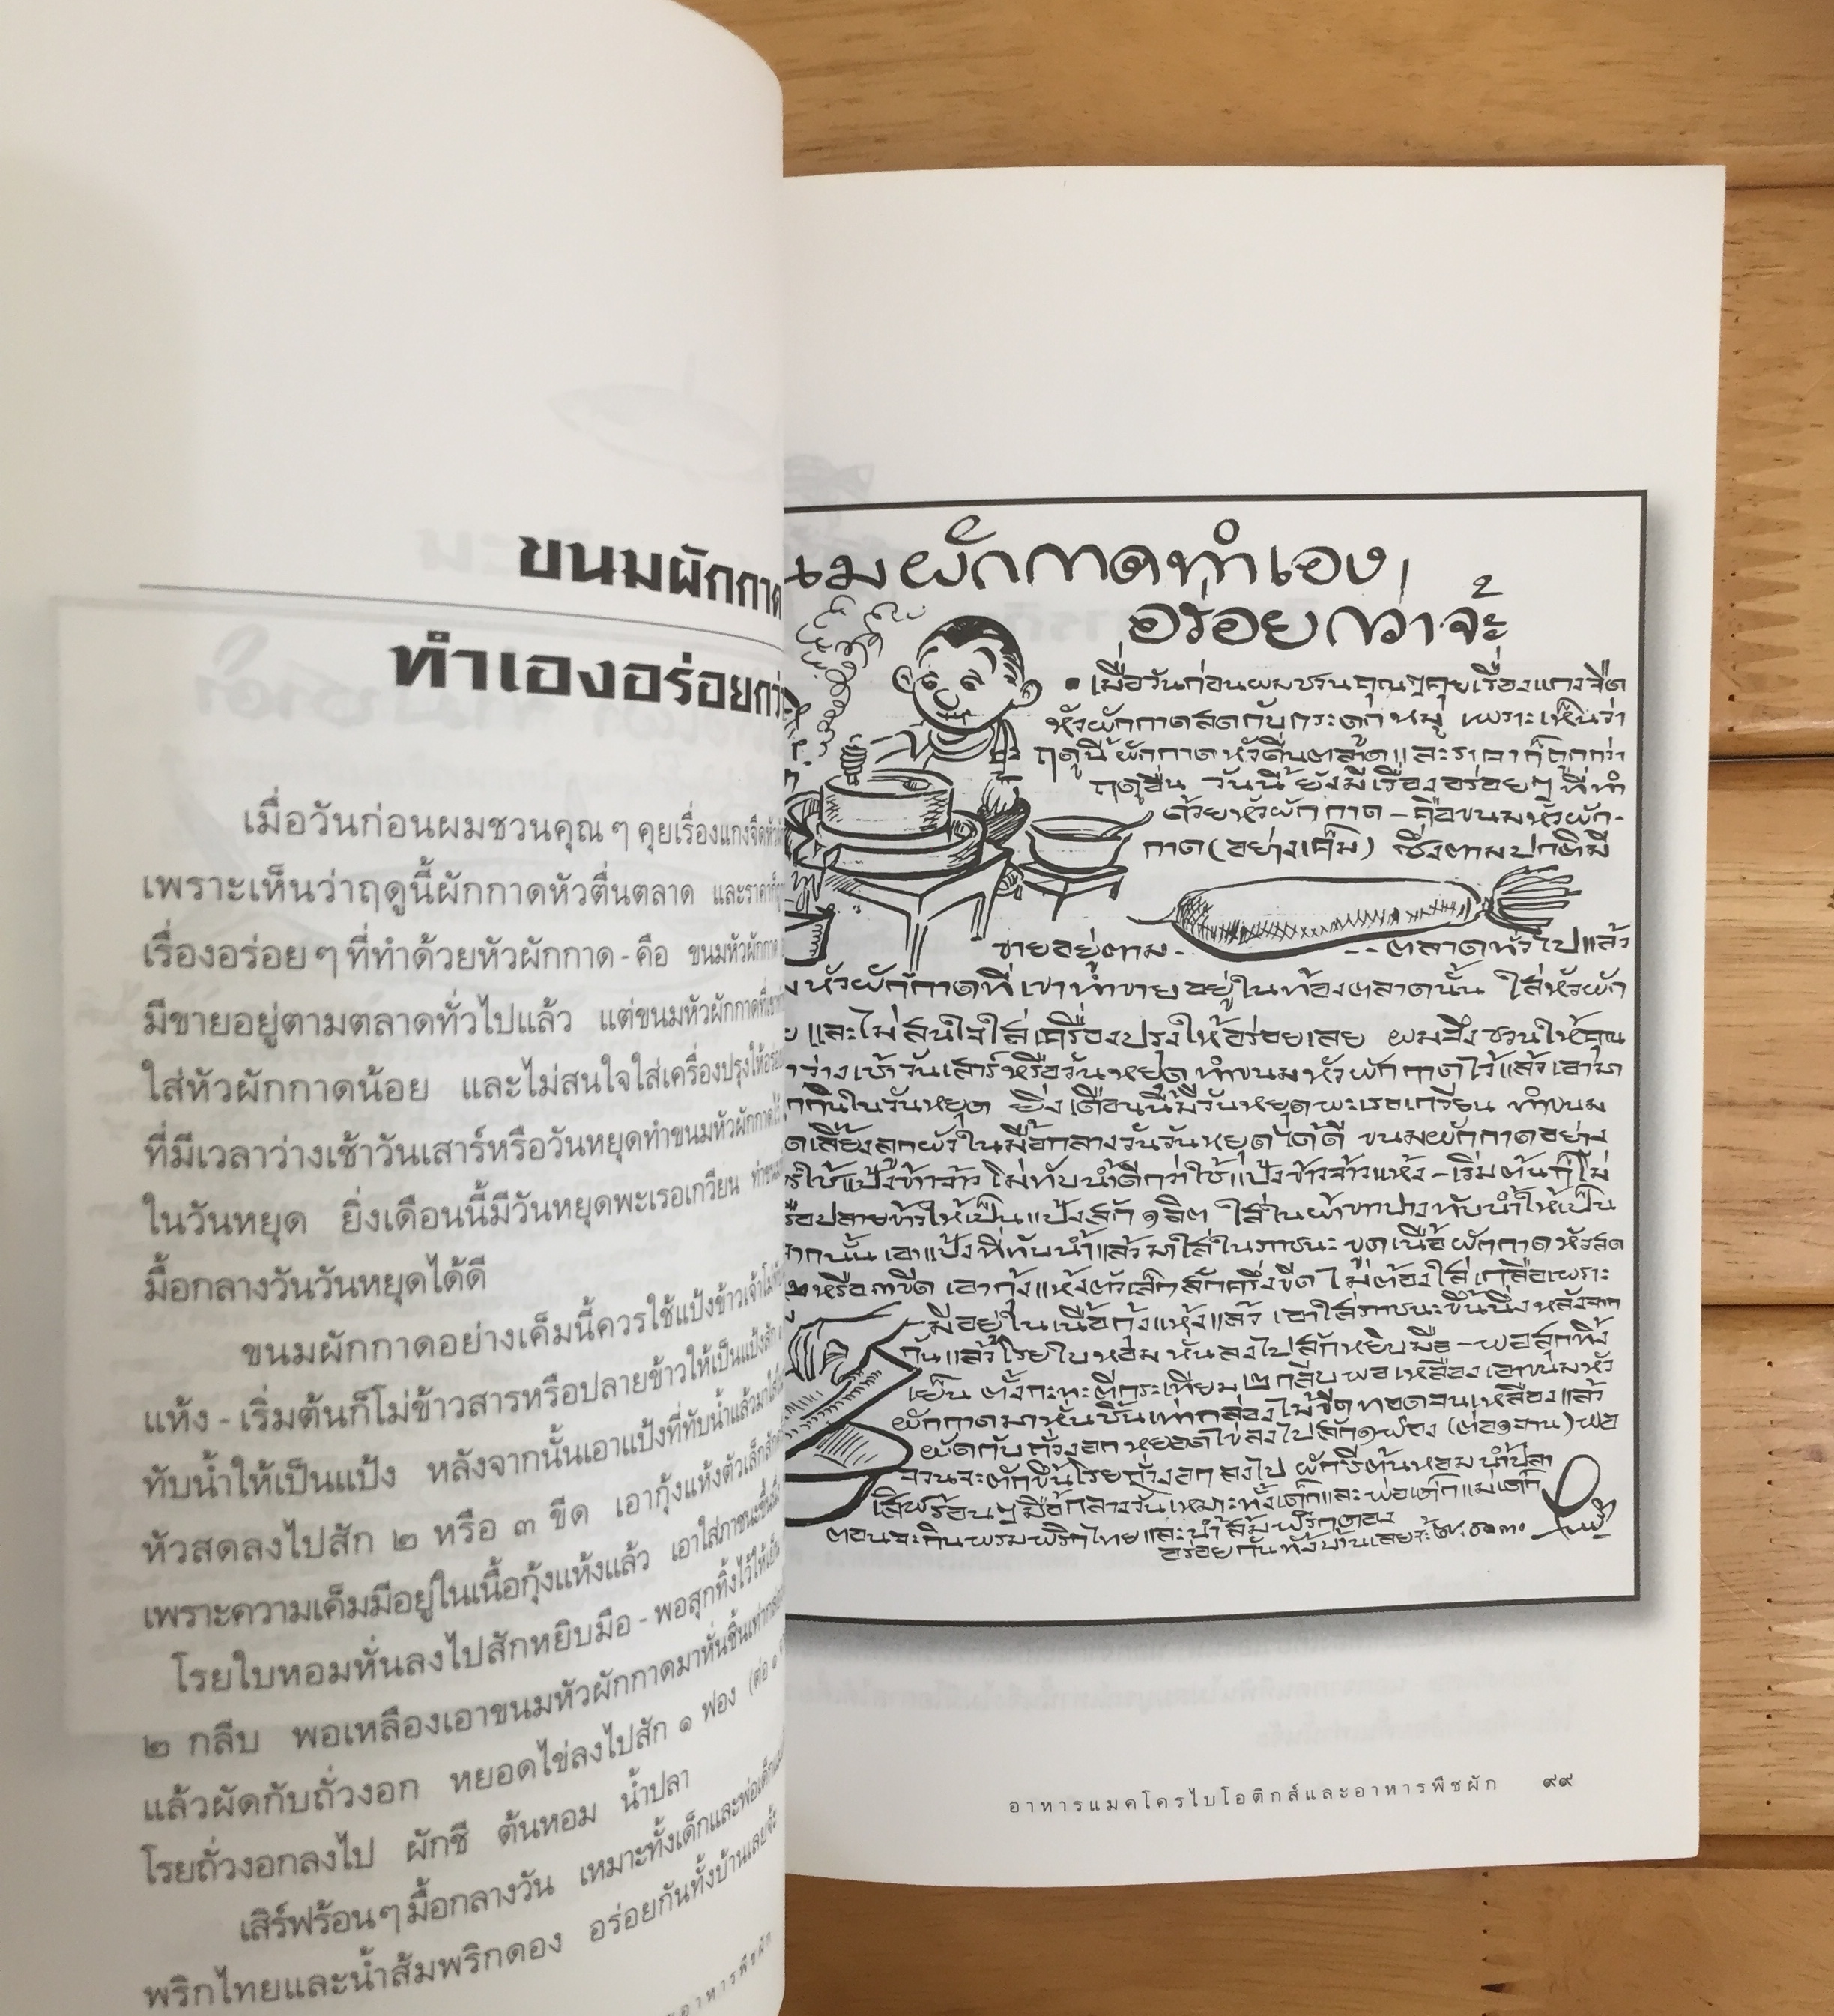 ขนมผักกาด
ทำเองอร่อยกว่
เมื่อวันก่อนผมชวนคุณ ๆ คุยเรื่องแกงจืดหัว
เพราะเห็นว่าฤดูนี้ผักกาดหัวตื่นตลาด และราคาก็
เรื่องอร่อย ๆ ที่ทำด้วยหัวผักกาด - คือ ขนมหัวผักกาด
มีขายอยู่ตามตลาดทั่วไปแล้ว แต่ขนมหัวผักกาดที่เขา
ใส่หัวผักกาดน้อย และไม่สนใจใส่เครื่องปรุงให้อร่อย
ที่มีเวลาว่างเช้าวันเสาร์หรือวันหยุดทำขนมหัวผักกาดไว้
ในวันหยุด ยิ่งเดือนนี้มีวันหยุดพะเรอเกวียน ทำขนม
มื้อกลางวันวันหยุดได้ดี
ขนมผักกาดอย่างเค็มนี้ควรใช้แป้งข้าวเจ้าโม่ทับ
แห้ง - เริ่มต้นก็โม่ข้าวสารหรือปลายข้าวให้เป็นแป้งสัก
ทับน้ำให้เป็นแป้ง หลังจากนั้นเอาแป้งที่ทับน้ำแล้วมาใส่
หัวสดลงไปสัก ๒ หรือ ๓ ขีด เอากุ้งแห้งตัวเล็กสัก
เพราะความเค็มมีอยู่ในเนื้อกุ้งแห้งแล้ว เอาใส่ภาชนะขึ้นนึ่ง
โรยใบหอมหั่นลงไปสักหยิบมือ - พอสุกทิ้งไว้ให้เย็น
๒ กลีบ พอเหลืองเอาขนมหัวผักกาดมาหั่นชิ้นเท่ากล่อง
แล้วผัดกับถั่วงอก หยอดไข่ลงไปสัก ๑ ฟอง (ต่อ ๑
โรยถั่วงอกลงไป ผักชี ต้นหอม น้ำปลา
เสิร์ฟร้อน ๆ มื้อกลางวัน เหมาะทั้งเด็กและพ่อเด็กแม่
พริกไทยและน้ำส้มพริกดอง อร่อยกันทั้งบ้านเลยจ้ะ
อาหารพืชผัก
นมผักกาดทำเอง,
อร่อยกว่าจ้ะ
• เมื่อวันก่อนผมชวนคุณๆคุยเรื่องแกงจืด
หัวผักกาดสดกับกระดูกหมู เพราะเห็นว่า
ฤดูนี้ผักกาดหัวตื่นตลาดและราคาก็ถูกกว่า
ฤดูอื่น วันนี้ยังมีเรื่องอร่อยๆที่ทำ
ด้วยหัวผักกาด - คือขนมหัวผัก-
กาด (อย่างเค็ม) ซึ่งตามปกติมี
ขายอยู่ตาม- --ตลาดทั่วไปแล้ว
หัวผักกาดที่เขาทำขายอยู่ในท้องตลาดนั้น ใส่หัวผัก
และไม่สนใจใส่เครื่องปรุงให้อร่อยเลย ผมจึงชวนให้คุณ
ว่างเช้าวันเสาร์หรือวันหยุดทำขนมหัวผักกาดไว้แล้วเอามา
กินในวันหยุด ยิ่งเดือนนี้มีวันหยุดพะเรอเกวียน ทำขนม
เลี้ยงลูกผัวในมื้อกลางวันวันหยุดได้ดี ขนมผักกาดอย่าง
ใช้แป้งข้าวเจ้าโม่ทับน้ำดีกว่าใช้แป้งข้าวเจ้าแห้ง - เริ่มต้นก็โม่
รือปลายข้าวให้เป็นแป้งสัก ๑ ลิตร ใส่ในผ้าขาวบางทับน้ำให้เป็น
จากนั้นเอาแป้งที่ทับน้ำแล้วมาใส่ในภาชนะ ขูดเนื้อผักกาดหัวสด
๒ หรือ ๓ ขีด เอากุ้งแห้งตัวเล็กสักครึ่งขีด ไม่ต้องใส่เกลือเพราะ
มีอยู่ในเนื้อกุ้งแห้งแล้ว เอาใส่ภาชนะขึ้นนึ่ง หลังจาก
นั้นแล้วโรยใบหอมหั่นลงไปสักหยิบมือ - พอสุกทิ้ง
เย็น ตั้งกะทะตีกระเทียม ๒ กลีบ พอเหลืองเอาขนมหัว
ผักกาดมาหั่นชิ้นเท่ากล่องไม้ขีด ทอดจนเหลืองแล้ว
ผัดกับถั่วงอก หยอดไข่ลงไปสัก ๑ ฟอง (ต่อ ๑ จาน) พอ
จวนจะตักขึ้นโรยถั่วงอกลงไป ผักชีต้นหอม น้ำปลา
เสิร์ฟร้อนๆมื้อกลางวันเหมาะทั้งเด็กและพ่อเด็กแม่เด็ก
ตอนจะกินพรมพริกไทยและน้ำส้มพริกดอง
อร่อยกันทั้งบ้านเลยจ้ะ
อาหารแมคโครไบโอติกส์และอาหารพืชผัก ๙๙